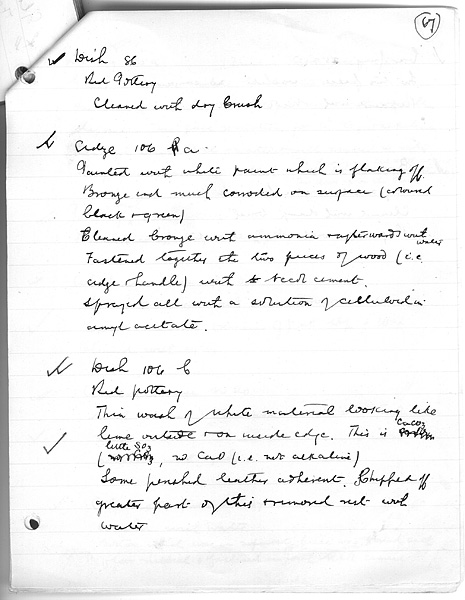 67
Dish 86
Red Pottery
Cleaned with dry brush
Adze 106 a.
Painted with white paint which is flaking off.
Bronze end much corroded on surface (coloured
black & green)
Cleaned bronze with ammonia & afterwards with
water
Fastened together the two pieces of wood (i.e.
adge & handle) with cement.
Sprayed all with a solution of celluloid in
amyl acetate.
Dish 106 b
Red pottery
Thin wash of white material looking like
lime outside & on inside edge. This is CaCO3
(little SO3, no CaO (i.e. not alkaline)
Some perished leather adherent. Chipped off
greater part of this & removed rest with
water